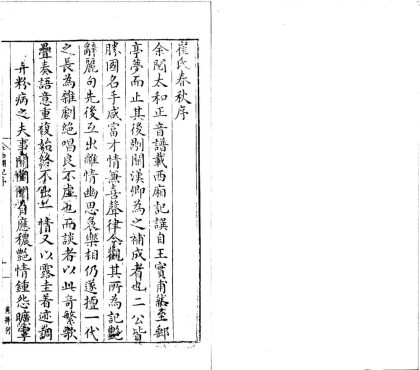 崔氏春秋序
余閱太和正音譜載西廂記譔自王實甫然至郵
亭夢而止其後則關漢卿為之補成者也二公皆
勝國名手咸富才情兼喜聲律今觀其所為記艷
辭麗句先後互出離情幽思哀樂相仍遂擅一代
之長為雜劇絕唱良不虛也而談者以此奇繁歌
疊奏語意重複始終不出一情又以露圭著迹調
弄粉病之夫事關閨闈自應穠艷情鍾怨曠寧